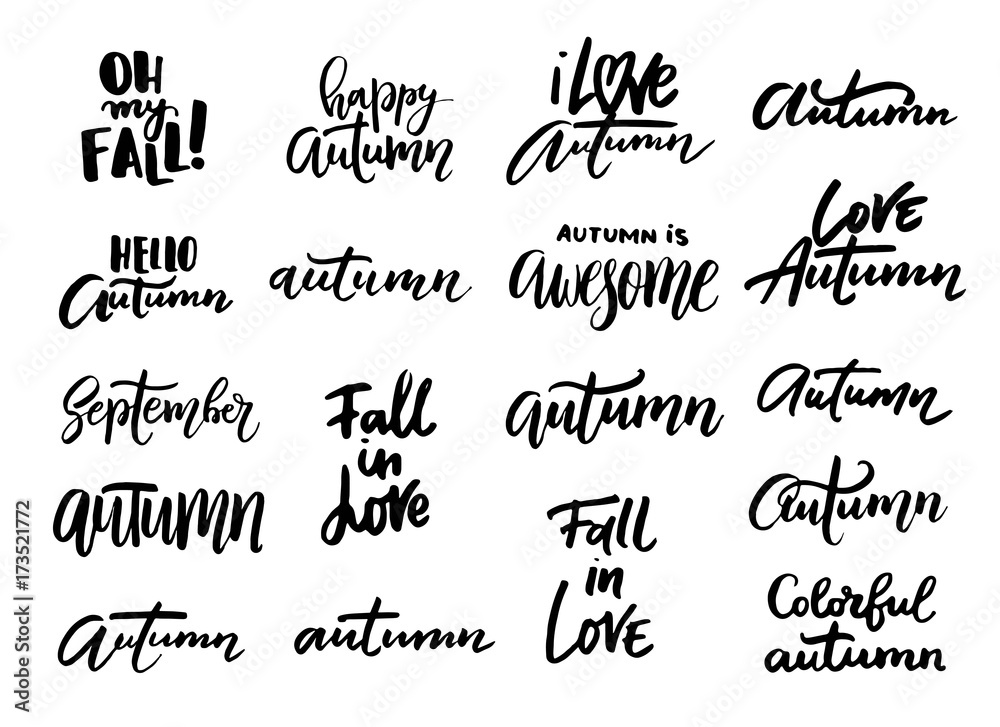 OH
my
FALL!
happy
autumn
i LOVE
Autumn
autumn
HELLO
Autumn
autumn
AUTUMN iS
awesome
LOVE
Autumn
September
Fall
in
Love
autumn
Autumn
autumn
Fall
in
LOVE
Autumn
Autumn
autumn
Colorful
autumn
Adobe Stock | #173521772